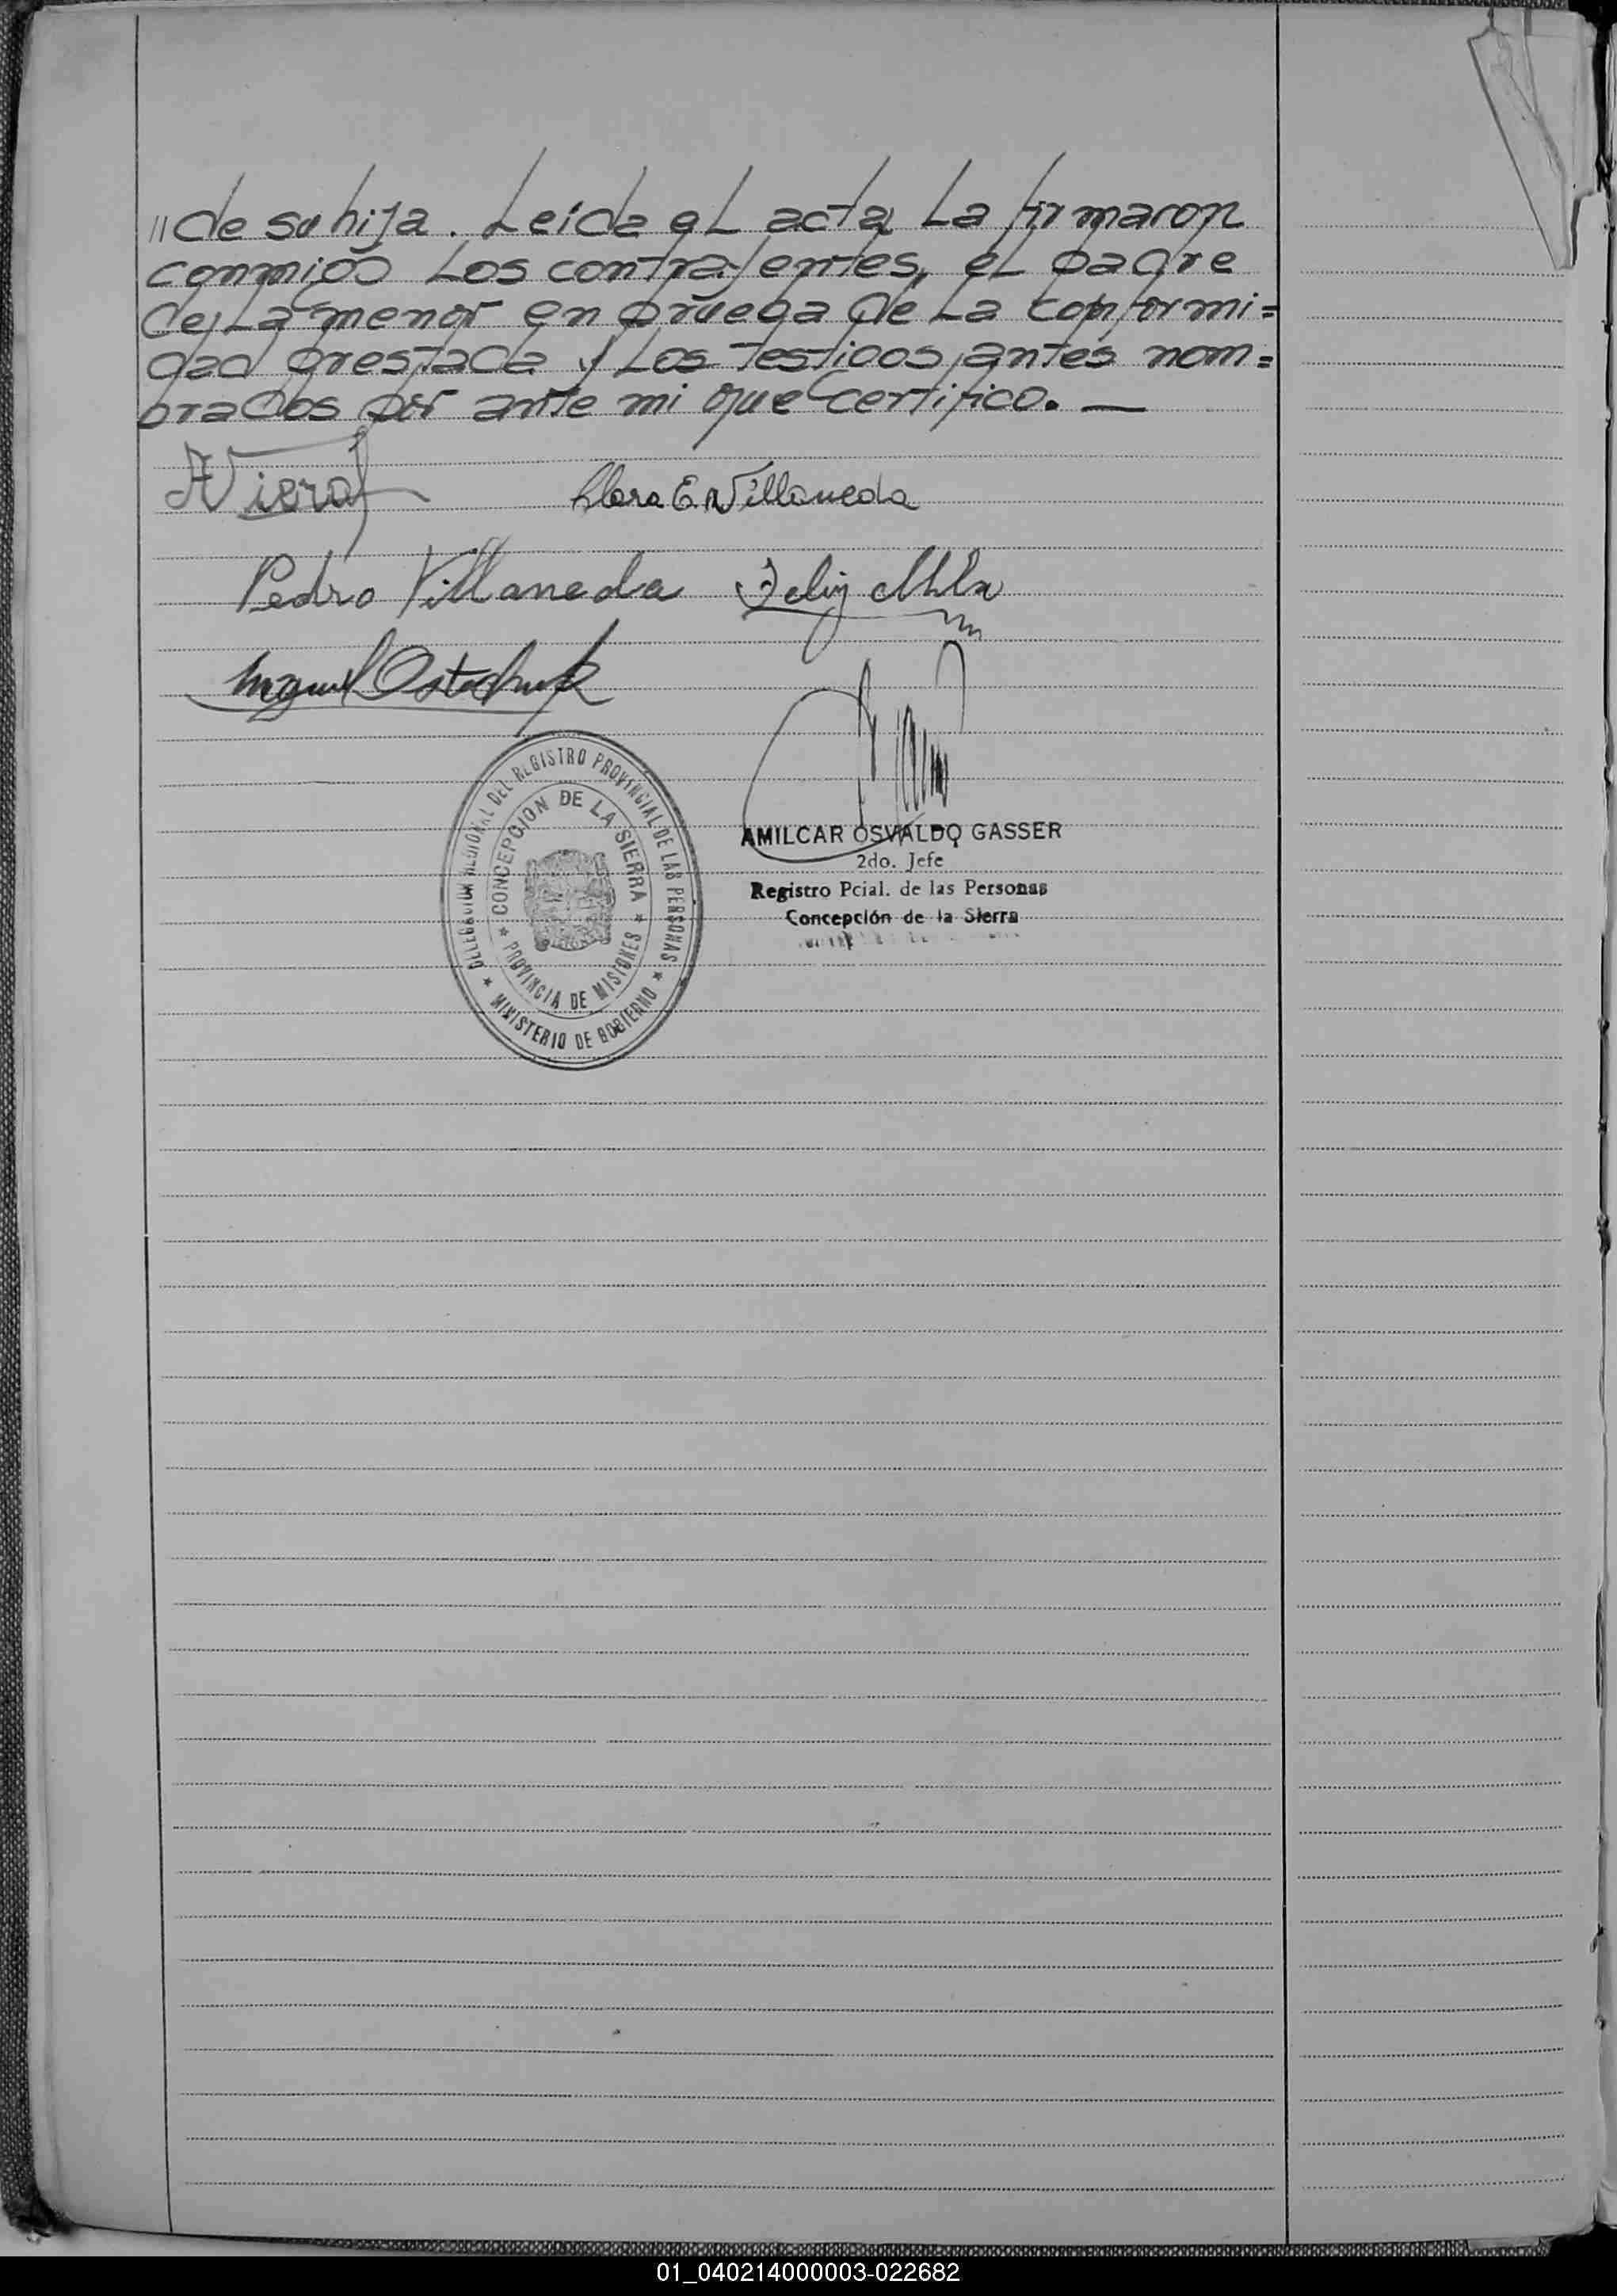 "de su hija. Leída el acta, la firmaron
conmigo los contrayentes, el padre
de la menor en prueba de la conformi=
dad prestada y los testigos antes nom=
brados por ante mi que certifico. —
AViera
Clara E. Villaneda
Pedro Villaneda
Miguel
DELEGACION REGIONAL DEL REGISTRO PROVINCIAL DE LAS PERSONAS
★ MINISTERIO DE GOBIERNO ★
★ CONCEPCION DE LA SIERRA ★
PROVINCIA DE MISIONES
AMILCAR OSVALDO GASSER
2do. Jefe
Registro Pcial. de las Personas
Concepción de la Sierra
01_040214000003-022682